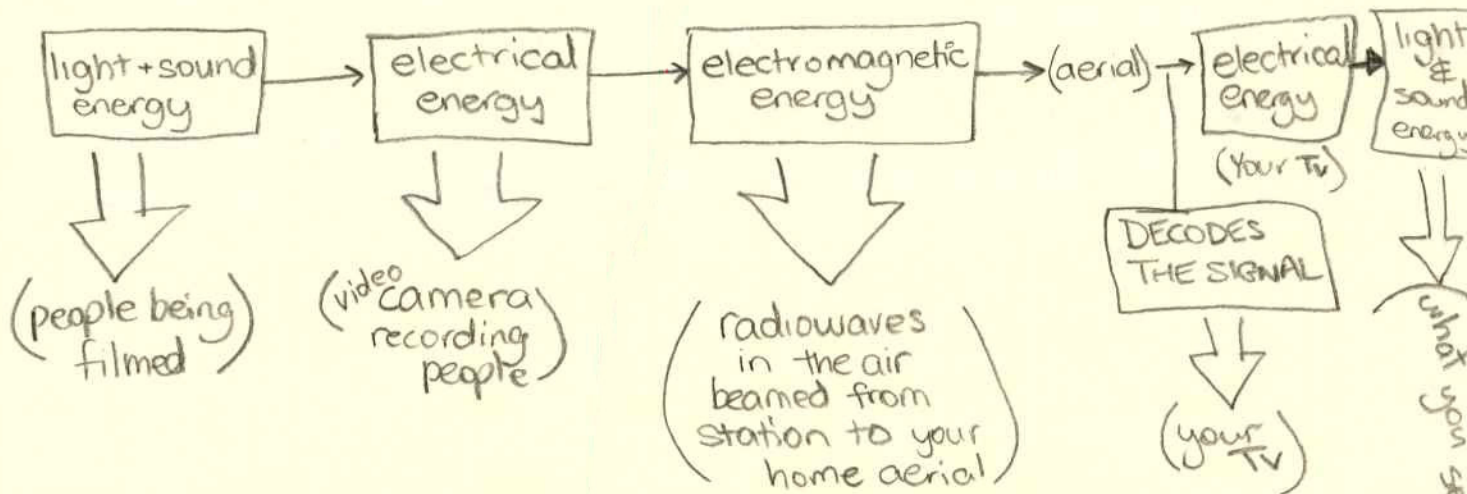 light + sound
energy
electrical
energy
electromagnetic
energy
(aerial)
electrical
energy
(Your TV)
light
&
sound
energy
(people being
filmed)
(video camera
recording
people)
(radiowaves
in the air
beamed from
station to your
home aerial)
DECODES
THE SIGNAL
(your
TV)
what you